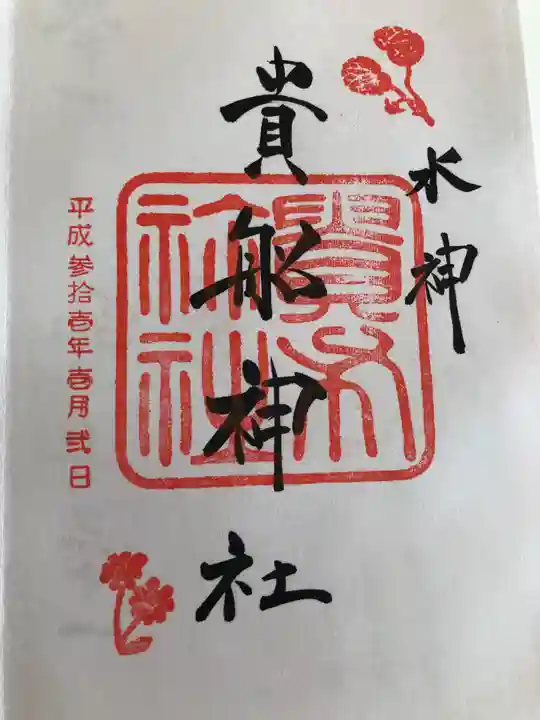 水神
貴船神社
平成参拾壱年壱月弐日